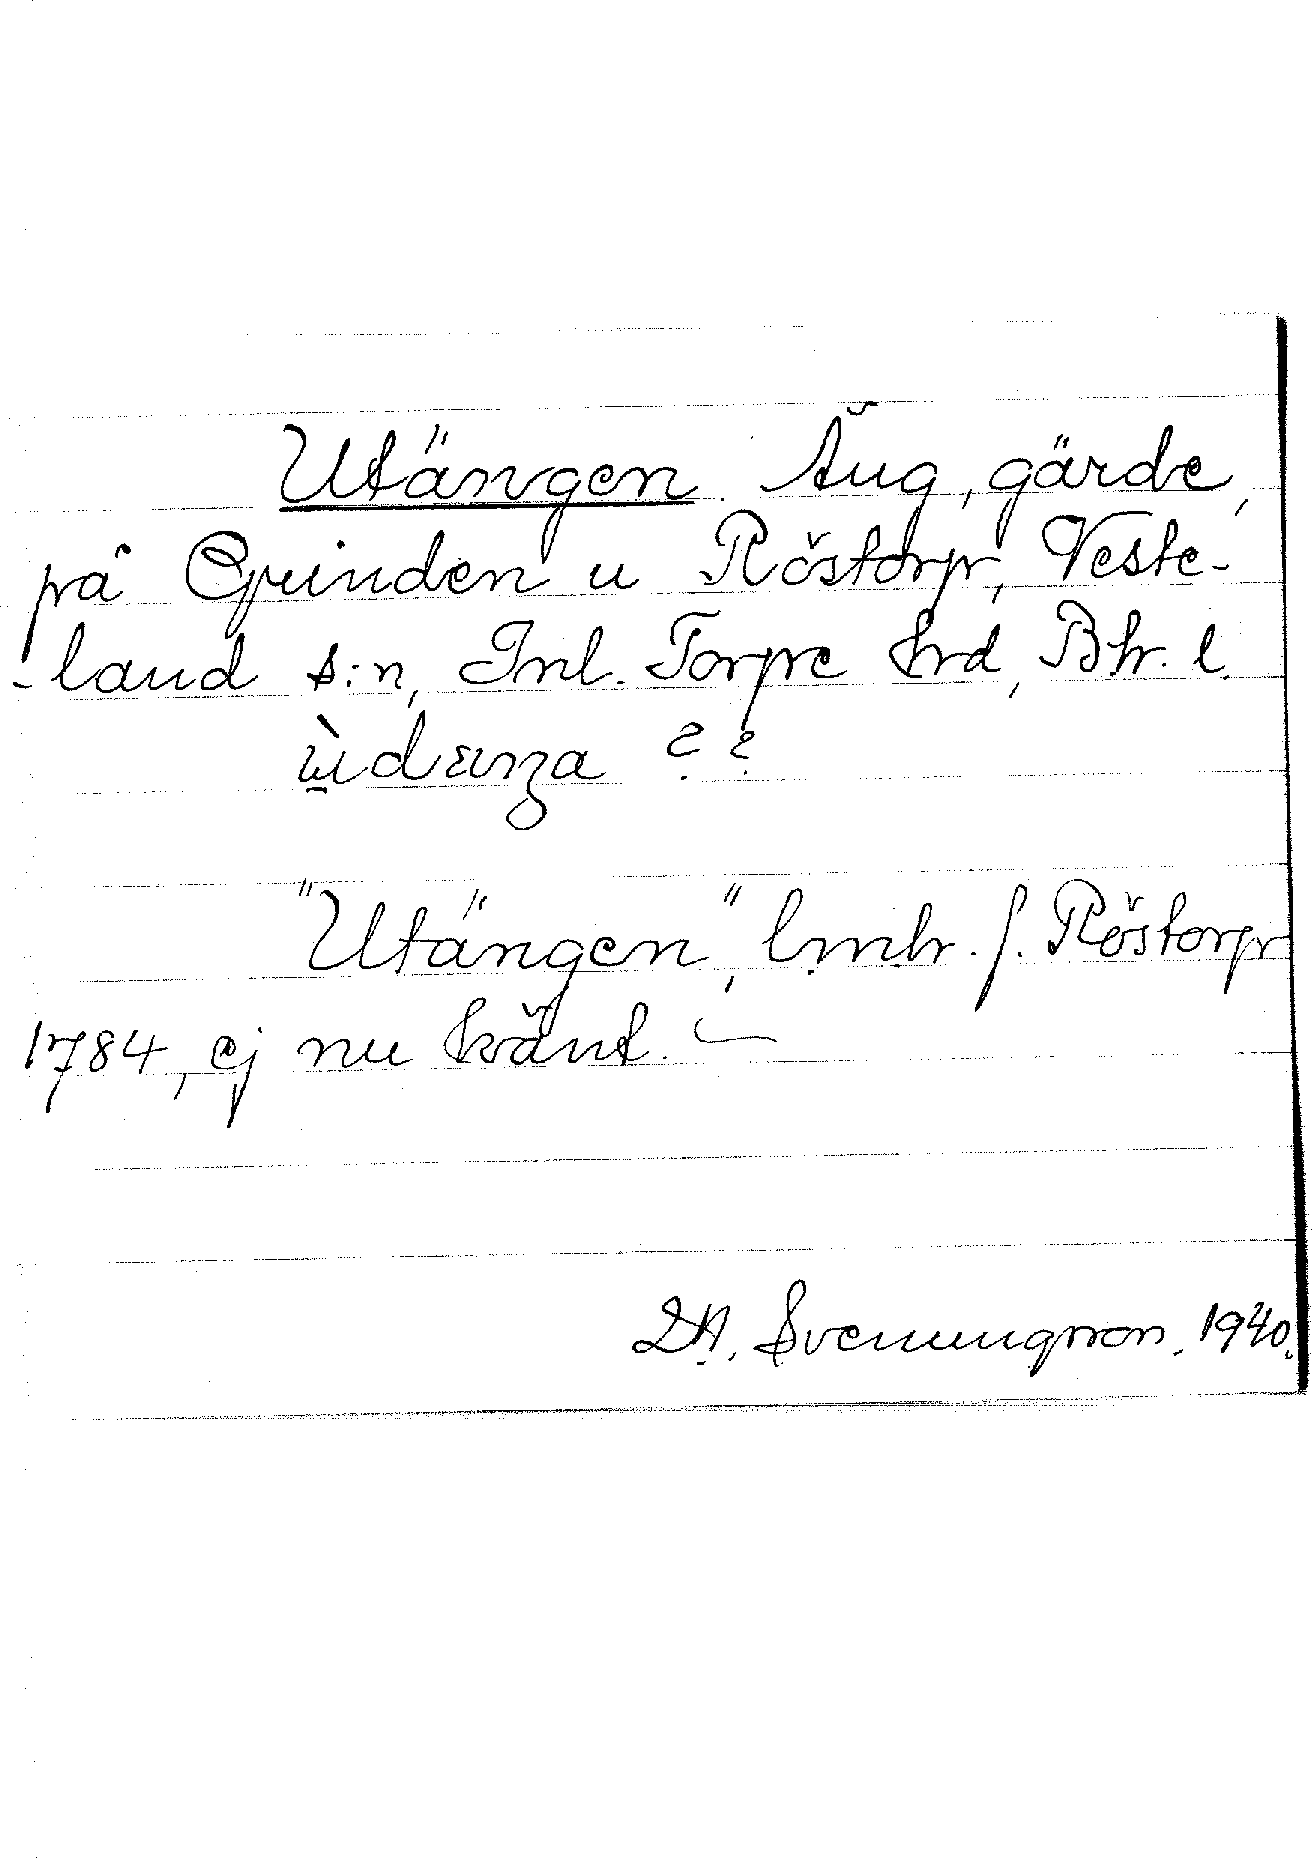 Utängen. Äng, gärde,
på Grinden u Röstorp, Veste-
-land s:n, Inl. Torpe hrd, Bh. l.
ùdæŋa ? ?
"Utängen", lmh. f. Röstorp
1784, ej nu känt. —
D.A. Svenungsson. 1940.